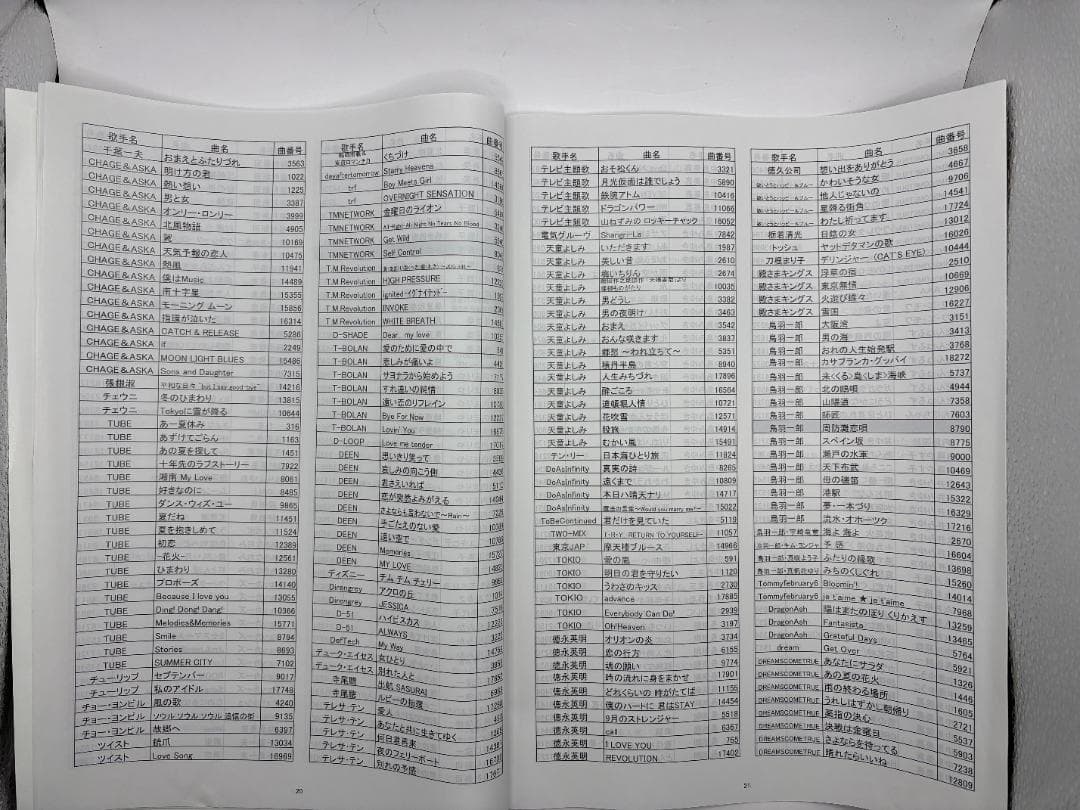 歌手名 曲名 曲番号
千葉一夫 おまえとふたりづれ 3563
CHAGE&ASKA 明け方の君 1022
CHAGE&ASKA 熱い想い 1225
CHAGE&ASKA 男と女 3387
CHAGE&ASKA オンリー・ロンリー 3999
CHAGE&ASKA 北風物語 4905
CHAGE&ASKA 10169
CHAGE&ASKA 天気予報の恋人 10475
CHAGE&ASKA 熱風 11941
CHAGE&ASKA 僕はMusic 14489
CHAGE&ASKA 南十字星 15355
CHAGE&ASKA モーニング ムーン 15856
CHAGE&ASKA 指環が泣いた 16314
CHAGE&ASKA CATCH & RELEASE 5286
CHAGE&ASKA if 2249
CHAGE&ASKA MOON LIGHT BLUES 15486
CHAGE&ASKA Sons and Daughter 7315
張銀淑 14216
チェウニ 冬のひまわり 13815
チェウニ Tokyoに雪が降る 10644
TUBE あー夏休み 316
TUBE あずけてごらん 1163
TUBE あの夏を探して 1451
TUBE 十年先のラブストーリー 7922
TUBE 湘南 My Love 8061
TUBE 好きなのに 8485
TUBE ダンス・ウィズ・ユー 9865
TUBE 夏だね 11451
TUBE 夏を抱きしめて 11524
TUBE 初恋 12389
TUBE -花火- 12561
TUBE ひまわり 13280
TUBE プロポーズ 14140
TUBE Because I love you 13055
TUBE Ding! Dong! Dang! 10366
TUBE Melodies&Memories 15771
TUBE Smile 8794
TUBE Stories 8693
TUBE SUMMER CITY 7102
チューリップ セプテンバー 9017
チューリップ 私のアイドル 17748
チョー・ヨンピル 風の歌 4240
チョー・ヨンピル ソウル ソウル ソウル 追信の街 9135
チョー・ヨンピル 故郷へ 6397
ツイスト 銃爪 13034
ツイスト Love Song 16969
歌手名 曲名 曲番
くちづけ
dayaftertomorrow Starry Heavens
trf Boy Meets Girl
trf OVERNIGHT SENSATION
TMNETWORK 金曜日のライオン
TMNETWORK All-Right All-Night No Tears No Blood
TMNETWORK Get Wild
TMNETWORK Self Control
T.M.Revolution
T.M.Revolution HIGH PRESSURE
T.M.Revolution ignited-イグナイテッド-
T.M.Revolution INVOKE
T.M.Revolution WHITE BREATH
D-SHADE Dear my love
T-BOLAN 愛のために愛の中で
T-BOLAN 悲しみが痛いよ
T-BOLAN サヨナラから始めよう
T-BOLAN すれ違いの純情
T-BOLAN 遠い恋のリフレイン
T-BOLAN Bye For Now
T-BOLAN Lovin' You
D-LOOP Love me tender
DEEN 思いきり笑って
DEEN 哀しみの向こう側
DEEN 君さえいれば
DEEN 君が突然よみがえる
DEEN さよならも言わないで~Rain~
DEEN 手ごたえのない愛
DEEN 遠い空で
DEEN Memories
DEEN MY LOVE
ディズニー チム チム チェリー
Direngrey アクロの丘
Direngrey JESSICA
D-51 ハイビスカス
D-51 ALWAYS
Def Tech My Way
デューク・エイセス 女ひとり
デューク・エイセス 別れた人と
寺尾聰 出航 SASURAI
寺尾聰 ルビーの指環
テレサ・テン 愛人
テレサ・テン あなたと共に生きてゆく
テレサ・テン 何日君再来
テレサ・テン 夜のフェリーボート
テレサ・テン 別れの予感
20
歌手名 曲名 曲番号
テレビ主題歌 おそ松くん 3321
テレビ主題歌 月光仮面は誰でしょう 5690
テレビ主題歌 鉄腕アトム 10416
テレビ主題歌 ドラゴンパワー 11066
テレビ主題歌 山ねずみの ロッキーチャック 16052
電気グルーヴ Shangri-La 7842
天童よしみ いただきます 1987
天童よしみ 美しい昔 2610
天童よしみ 2674
天童よしみ 10035
天童よしみ 男どうし 3382
天童よしみ 男の夜明け 3463
天童よしみ おまえ 3542
天童よしみ おんな咲きます 3837
天童よしみ ~われ立ちて~ 5351
天童よしみ 積丹半島 8940
天童よしみ 人生みちづれ 17896
天童よしみ 酔ごころ 16564
天童よしみ 道頓堀人情 10721
天童よしみ 花吹雪 12571
天童よしみ 14914
天童よしみ むかい嵐 15491
テン・リー 日本海ひとり旅 11824
DoAsInfinity 真実の詩 8265
DoAsInfinity 遠くまで 10809
DoAsInfinity 本日ハ晴天ナリ 14717
DoAsInfinity 魔法の言葉~Would you marry me?~ 15022
ToBeContinued 君だけを見ていた 5119
TWO-MIX T・R・Y RETURN TO YOURSELF 11057
東京JAP 摩天楼ブルース 14966
TOKIO 愛の嵐 591
TOKIO 明日の君を守りたい 1120
TOKIO うわさのキッス 2730
TOKIO advance 17885
TOKIO Everybody Can Do! 2939
TOKIO Oh!Heaven 3197
徳永英明 オリオンの炎 3734
徳永英明 恋の行方 6155
徳永英明 魂の願い 9774
徳永英明 時の流れに身をまかせ 17901
徳永英明 どれくらいの 時がたてば 11155
徳永英明 僕のハートに 君はSTAY 14454
徳永英明 9月のストレンジャー 5518
徳永英明 call 6367
徳永英明 I LOVE YOU 755
徳永英明 REVOLUTION 17402
歌手名 曲名 曲番号
徳久公司 想い出をありがとう 3858
かわいそうな女 4667
他人じゃないの 9706
星降る街角 14541
わたし祈ってます 17724
栃若清光 13012
トッシュ ヤットデタマンの歌 16026
刀根まり子 デリンジャー (CAT'S EYE) 10444
殿さまキングス 浮草の宿 2510
殿さまキングス 東京無情 10669
殿さまキングス 火遊び様々 12906
殿さまキングス 雪国 16227
鳥羽一郎 大阪湾 3151
鳥羽一郎 男の海 3413
鳥羽一郎 おれの人生始発駅 3768
鳥羽一郎 カサブランカ・グッバイ 18272
鳥羽一郎 来<くる>島<しま>海峡 5737
鳥羽一郎 北の鴎唄 4944
鳥羽一郎 山陽道 7358
鳥羽一郎 師匠 7603
鳥羽一郎 周防灘恋唄 8790
鳥羽一郎 スペイン坂 8775
鳥羽一郎 瀬戸の水軍 9000
鳥羽一郎 天下布武 10469
鳥羽一郎 母の磯笛 12643
鳥羽一郎 港駅 15322
鳥羽一郎 夢・一本づり 16329
鳥羽一郎 流氷・オホーツク 17216
海よ 海よ 2670
16604
ふたりの縁歌 13698
みちのくしぐれ 15260
Tommyfebruary6 Bloomin'! 14014
Tommyfebruary6 je t'aime ★ je t'aime 7968
DragonAsh 陽はまたのぼりくりかえす 13259
DragonAsh Fantasista 13485
DragonAsh Grateful Days 5764
dream Get Over 5921
DREAMSCOMETRUE あなたにサラダ 1326
DREAMSCOMETRUE あの夏の花火 1446
DREAMSCOMETRUE 雨の終わる場所 1605
DREAMSCOMETRUE うれしはずかし朝帰り 2721
DREAMSCOMETRUE 薬指の決心 5537
DREAMSCOMETRUE 決戦は金曜日 5903
DREAMSCOMETRUE さよならを待ってる 7238
DREAMSCOMETRUE 晴れたらいいね 12809
21